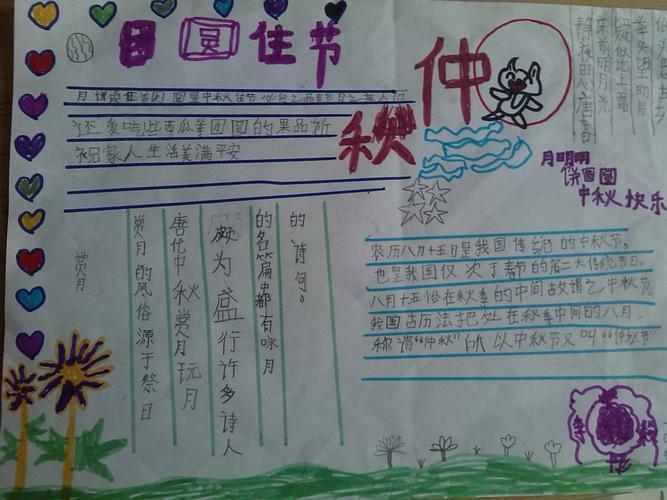 月圆佳节
仲
秋
月饼
中秋佳节必备之品在节日之
还爱吃些西瓜等团圆的果品祈
祝家人生活美满平安
静夜思唐李白
床前明月光
疑似地上霜
举头望明月
月明明
饼圆圆
中秋快乐
赏月
赏月的风俗源于祭月
唐代中秋赏月玩月
颇为盛行许多诗人
的名篇中都有咏月
的诗句。
农历八月十五日是我国传统的中秋节,
也是我国仅次于春节的第二大传统节日。
八月十五恰在秋季的中间故谓之中秋节
我国古历法把处在秋季中间的八月,
称谓“仲秋”所以中秋节又叫“仲秋节”